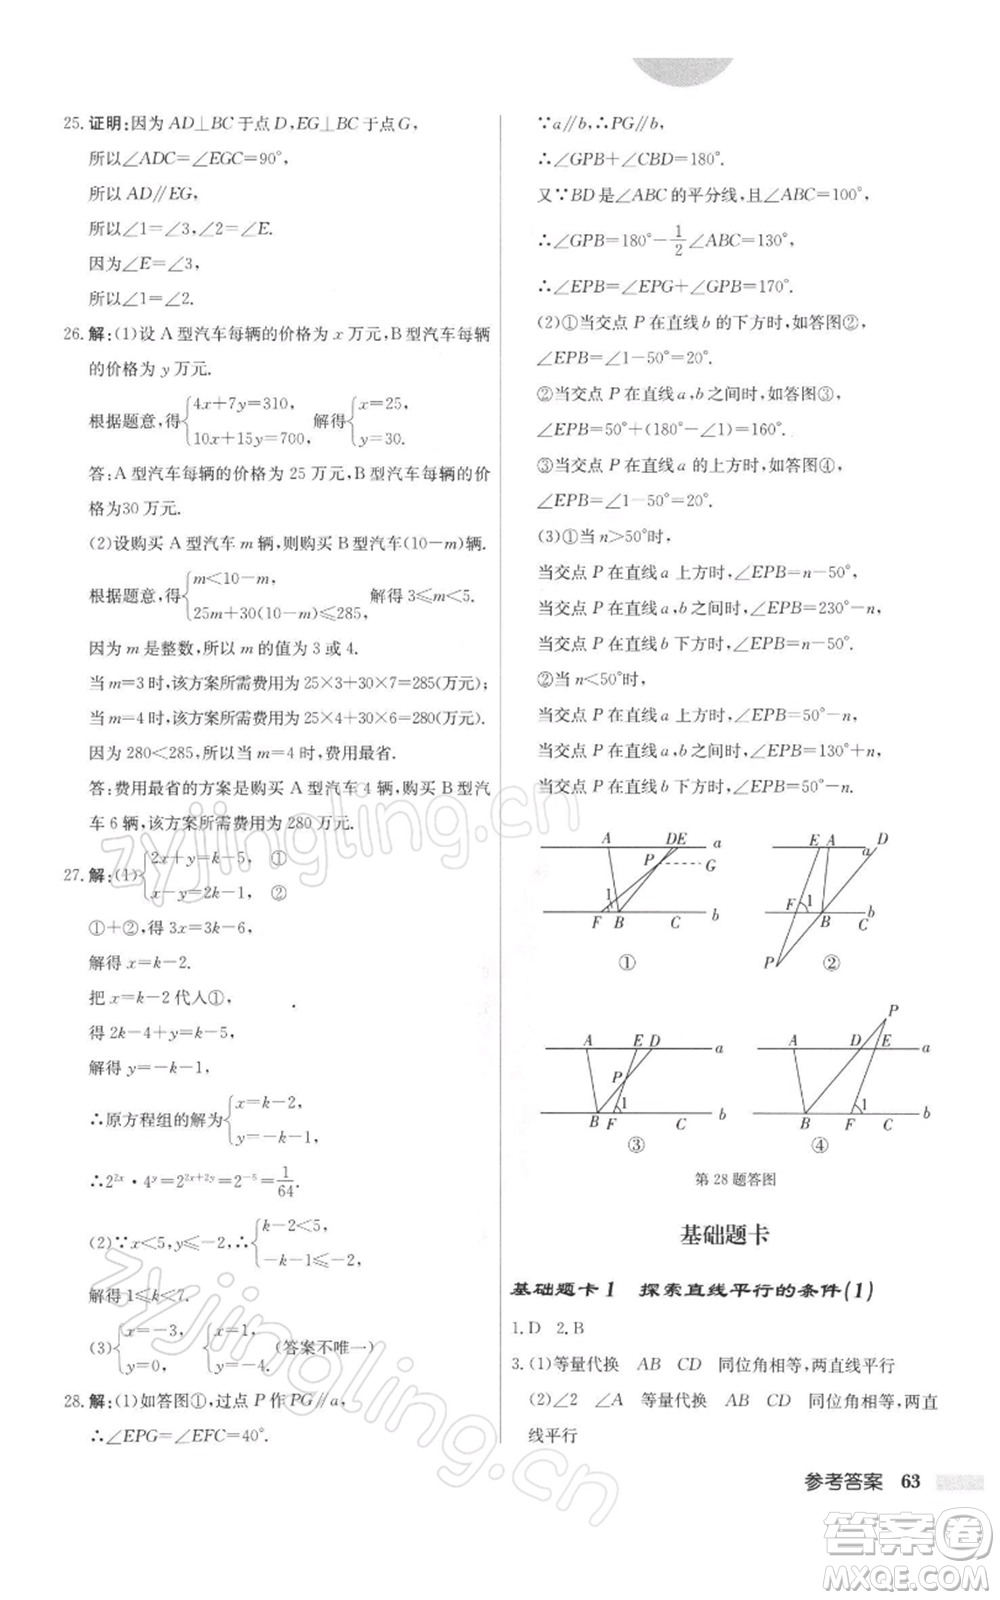 25. 证明:因为 AD⊥BC于点 D,EG⊥BC于点G,
所以∠ADC=∠EGC=90°,
所以 AD∥EG,
所以∠1=∠3,∠2=∠E.
因为∠E=∠3,
所以∠1=∠2.
26. 解:(1)设 A 型汽车每辆的价格为 x 万元,B型汽车每辆
的价格为 y 万元.
根据题意,得{4x+7y=310, 10x+15y=700, 解得{x=25, y=30.
答:A 型汽车每辆的价格为 25 万元,B型汽车每辆的价
格为30 万元.
(2)设购买 A 型汽车 m 辆,则购买 B型汽车(10-m)辆.
根据题意,得{m<10-m, 25m+30(10-m)≤285, 解得 3≤m<5.
因为 m 是整数,所以 m 的值为 3 或 4.
当 m=3 时,该方案所需费用为 25×3+30×7=285(万元);
当 m=4 时,该方案所需费用为 25×4+30×6=280(万元).
因为 280<285,所以当 m=4 时,费用最省.
答:费用最省的方案是购买 A 型汽车 4 辆,购买 B 型汽
车 6 辆,该方案所需费用为 280 万元.
27. 解:(1){2x+y=k-5, ① x-y=2k-1, ②
①+②,得 3x=3k-6,
解得 x=k-2.
把 x=k-2 代人①,
得 2k-4+y=k-5,
解得 y=-k-1,
∴原方程组的解为{x=k-2, y=-k-1,
∴2²ˣ·4ʸ=2²ˣ⁺²ʸ=2⁻⁵=1/64.
(2)∵x<5,y≤-2,∴{k-2<5, -k-1≤-2,
解得 1≤k<7.
(3){x=-3, y=0, {x=-1, y=-4. (答案不唯一)
28. 解:(1)如答图①,过点 P 作 PG∥a,
∴∠EPG=∠EFC=40°.
∵a∥b,∴PG∥b,
∴∠GPB+∠CBD=180°.
又∵BD是∠ABC的平分线,且∠ABC=100°,
∴∠GPB=180°-1/2∠ABC=130°,
∴∠EPB=∠EPG+∠GPB=170°.
(2)①当交点 P 在直线 b 的下方时,如答图②,
∠EPB=∠1-50°=20°.
②当交点 P 在直线 a,b之间时,如答图③,
∠EPB=50°+(180°-∠1)=160°.
③当交点 P 在直线 a 的上方时,如答图④,
∠EPB=∠1-50°=20°.
(3)①当 n>50°时,
当交点 P 在直线 a 上方时,∠EPB=n-50°,
当交点 P 在直线 a,b 之间时,∠EPB=230°-n,
当交点 P 在直线 b 下方时,∠EPB=n-50°.
②当 n<50°时,
当交点 P 在直线a 上方时,∠EPB=50°-n,
当交点 P 在直线 a,b 之间时,∠EPB=130°+n,
当交点 P 在直线 b 下方时,∠EPB=50°-n.
A DE a
P G
1
F B C b
①
E A a D
F 1 B b
P
②
A E D a
P
1
B F C b
③
P
A D E a
1
B F C b
④
第 28 题答图
基础题卡
基础题卡 1 探索直线平行的条件(1)
1. D 2. B
3. (1)等量代换 AB CD 同位角相等,两直线平行
(2)∠2 ∠A 等量代换 AB CD 同位角相等,两直
线平行
参考答案 63
zyjingling.cn
zyjingling.cn
答案卷
MXQE.COM